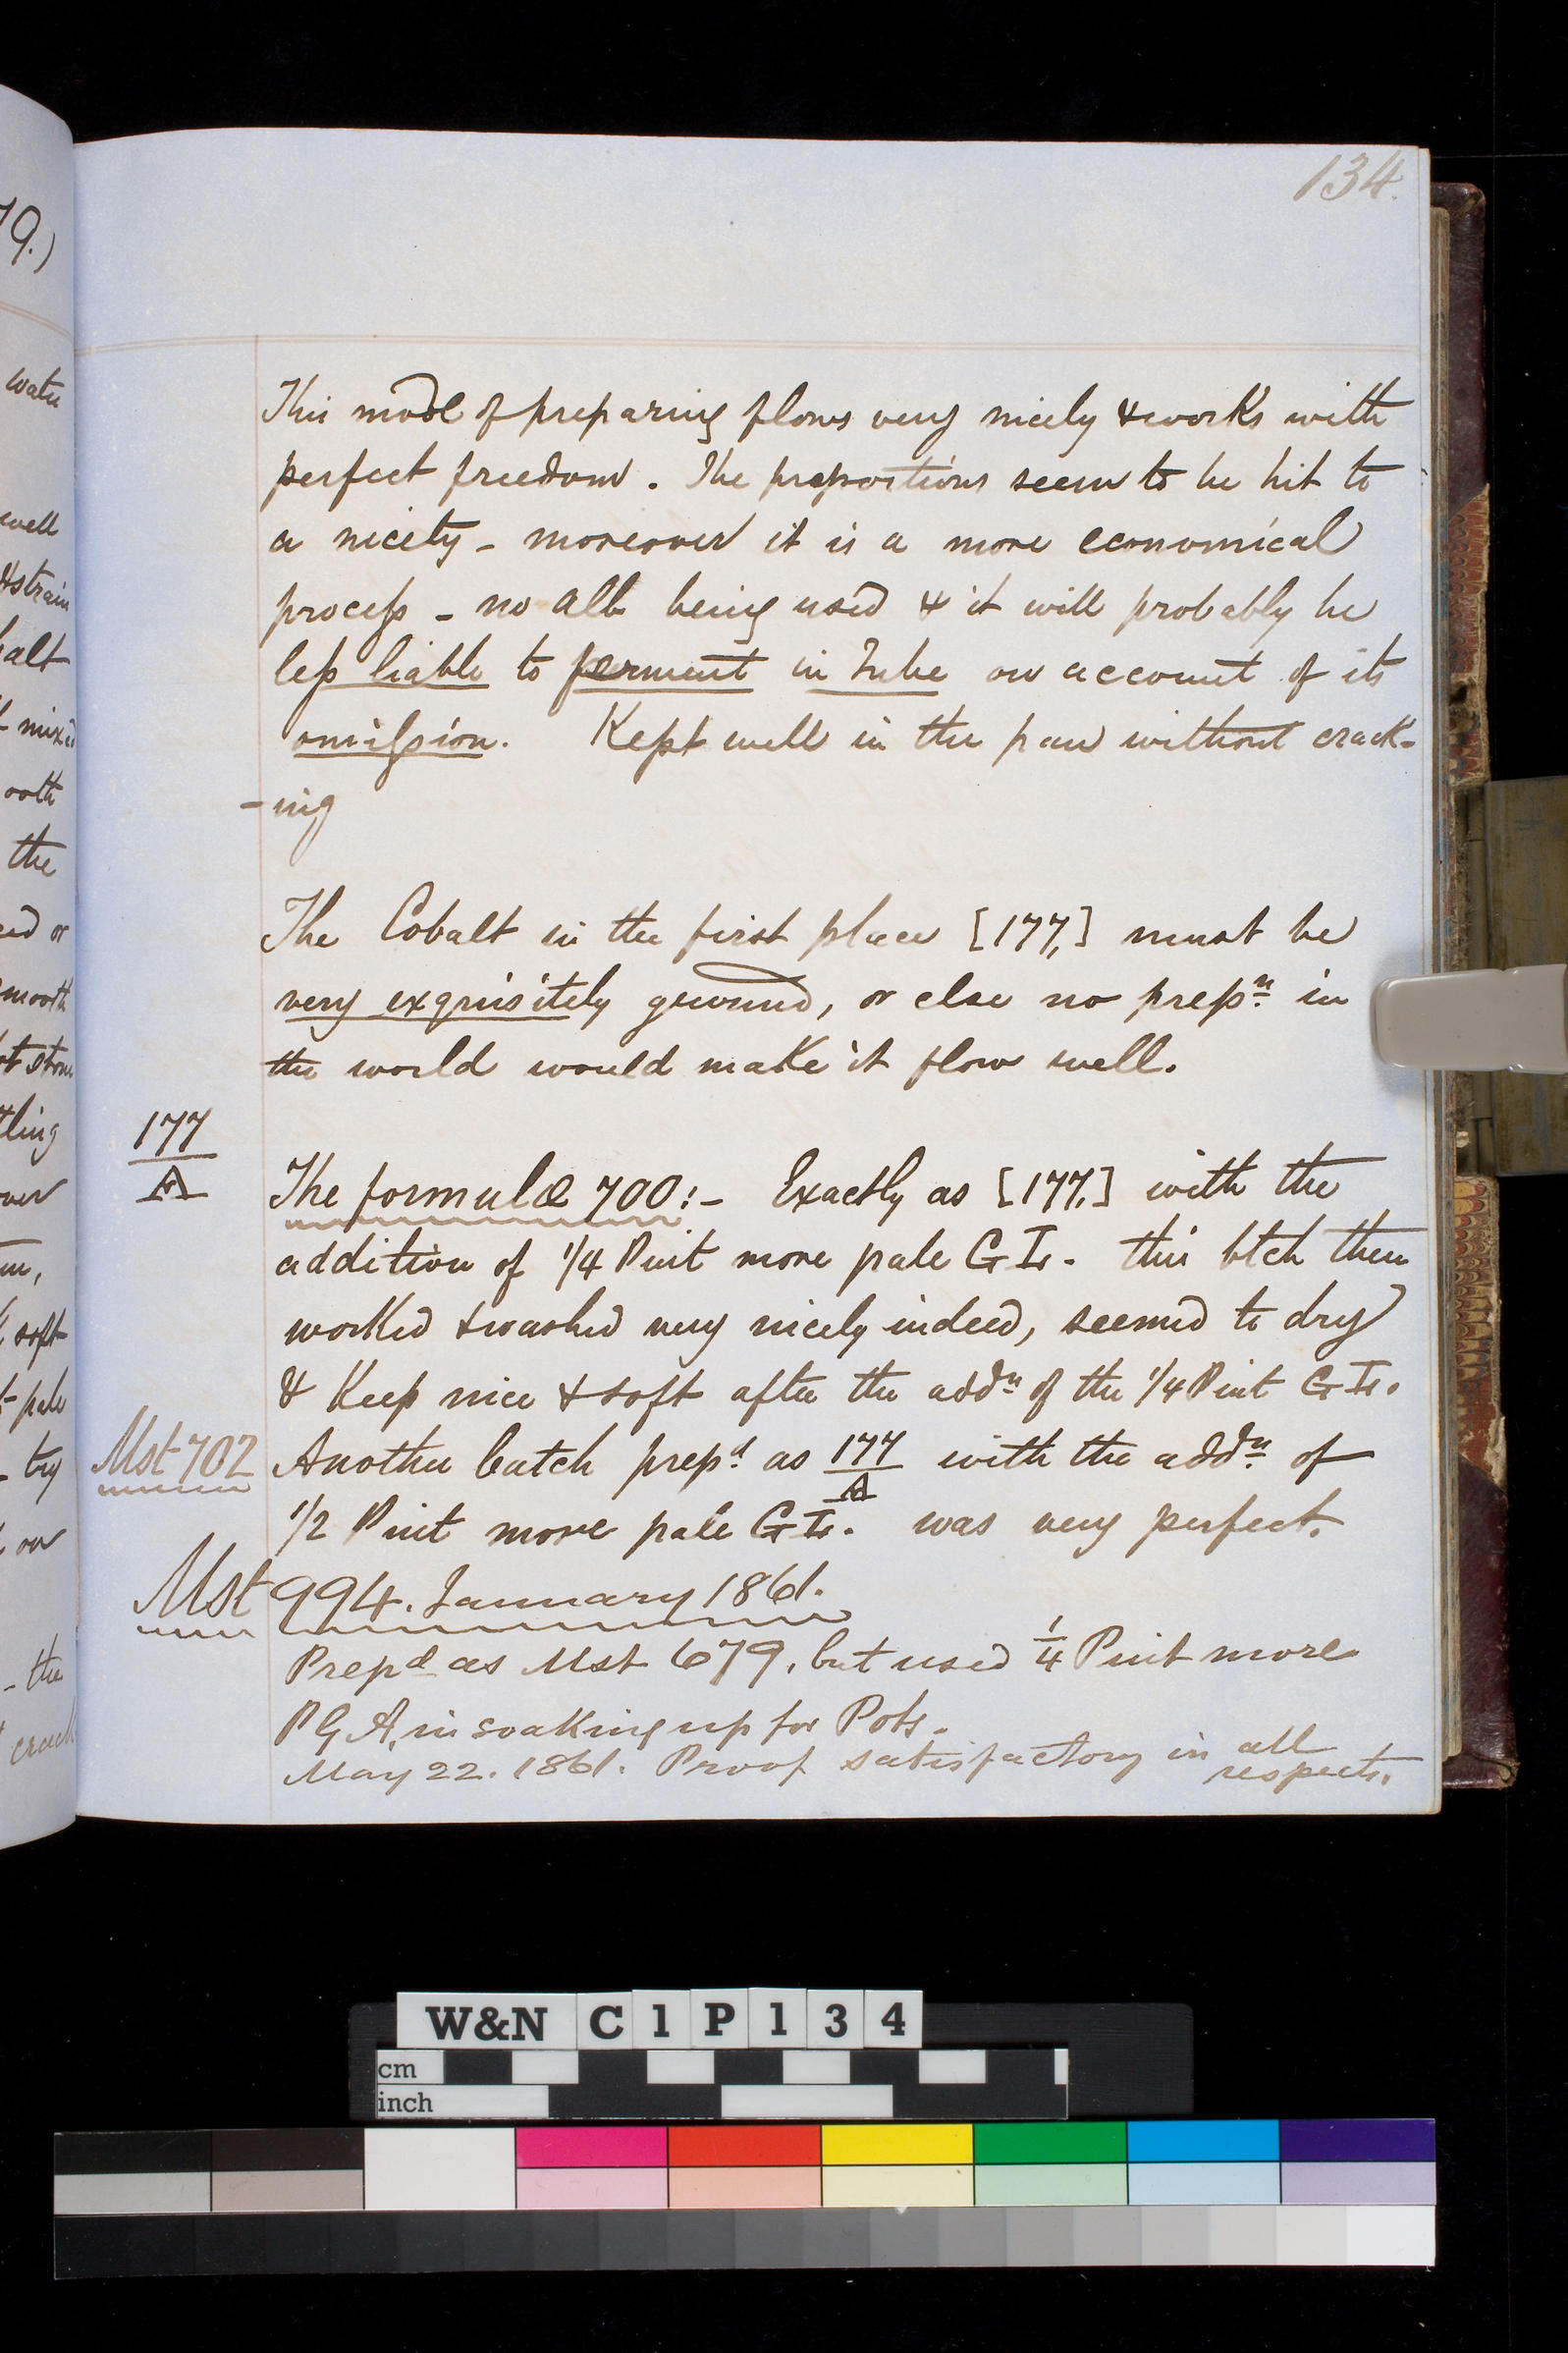 134.
This mode of preparing flows very nicely & works with
perfect freedom. The proportions seem to be hit to
a nicety - moreover it is a more economical
process - no alb being used & it will probably be
less liable to ferment in Tube on account of its
omission. Kept well in the pan without crack-
-ing
The Cobalt in the first place [177,] must be
very exquisitely ground, or else no prepn. in
the world would make it flow well.
177
A
The formulæ 700:- Exactly as [177.] with the
addition of 1/4 Pint more pale G Tr. this btch then
worked & washed very nicely indeed, seemed to dry
& Keep nice & soft after the addn of the 1/4 Pint G Tr.
Mst 702 Another batch prepd. as 177/A with the addn. of
1/2 Pint more pale G Tr. was very perfect.
Mst 994. January 1861.
Prepd as Mst 679, but used 1/4 Pint more
P G A, in soaking up for Pots.
May 22. 1861. Proof satisfactory in all
respects.
79.)
water
well
& strain
balt
mixed
ooth
the
ed or
smooth
stone
tling
over
soft
pale
- try
on
- the
crack
W&N C1P134
cm
inch